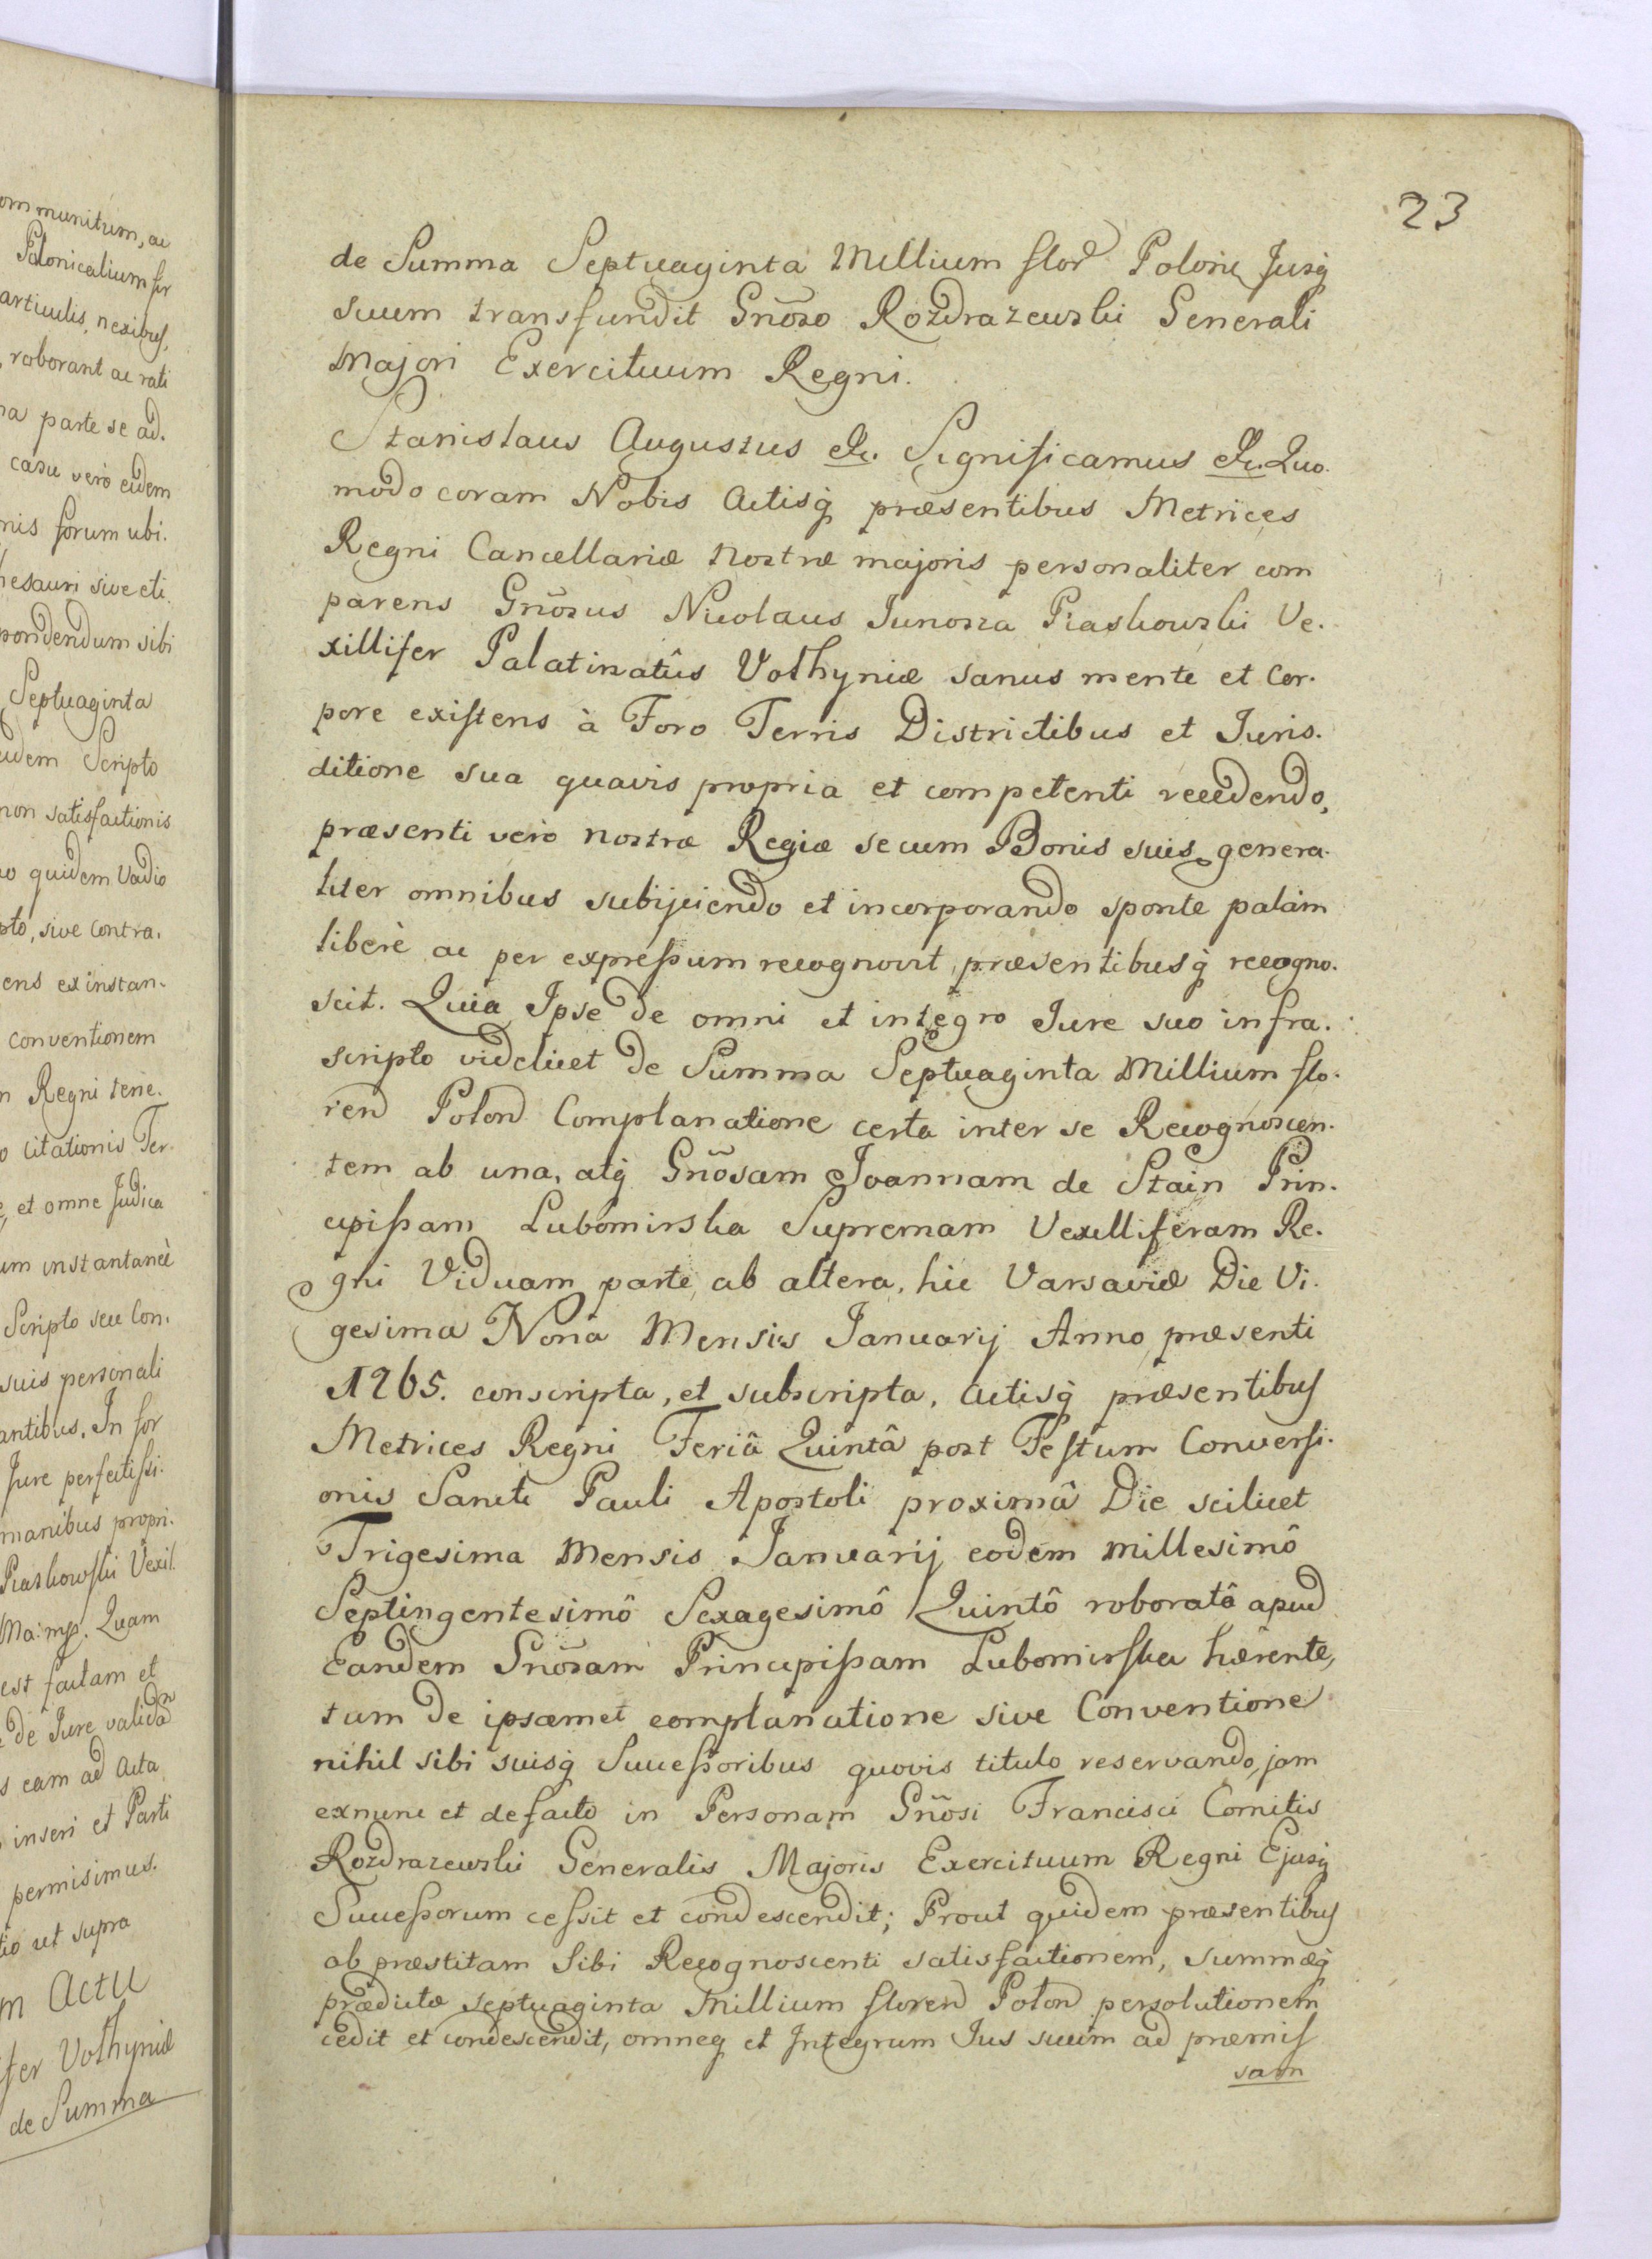 ommunitum, ac
Polonicalium flor
articulis, nexibus,
roborant ac rati
na parte se ad.
casu verò eidem
nis forum ubi.
hesauri sive eti.
pondendum sibi
Septuaginta
eidem Scripto
non satisfactionis
vo quidem Vadio
pto, sive Contra.
ens ex instan.
conventionem
n Regni tene.
o Citationis Ter.
e, et omne Judica
um instantaneè
Scripto seu Con.
suis personali
antibus. In for
Jure perfectissi.
manibus propri.
Piaskowski Vexil.
Ma: mp. Quam
est factam et
de Jure validam
s eam ad Acta
inseri et Parti
permisimus.
tio ut supra
m Actu
fer Volhyniæ
de Summa
23
de Summa Septuaginta Millium flor Polon Jusq
suum transfundit Gnõso Rozdrazewski Generali
Majori Exercituum Regni.
Stanislaus Augustus &c. Significamus &c. Quo.
modo coram Nobis Actisq præsentibus Metrices
Regni Cancellariæ nostræ majoris personaliter com
parens Gnõsus Nicolaus Junosza Piaskowski Ve.
xillifer Palatinatûs Volhyniæ sanus mente et Cor.
pore existens à Foro Terris Districtibus et Juris.
ditione sua quavis propria et competenti recedendo,
præsenti verò nostræ Regiæ secum Bonis suis genera.
liter omnibus subijciendo et incorporando sponte palàm
liberè ac per expressum recognovit, præsentibusq recogno.
scit. Quia Ipse de omni et integro Jure suo infra.
scripto videlicet de Summa Septuaginta Millium flo.
ren Polon Complanatione certa inter se Recognoscen.
tem ab una, atq Gnõsam Joannam de Stain Prin.
cipissam Lubomirska Supremam Vexilliferam Re.
gni Viduam parte ab altera, hic Varsaviæ Die Vi.
gesima Nona Mensis Januarij Anno præsenti
1765. conscripta, et subscripta, Actisq præsentibus
Metrices Regni Feriâ Quintâ post Festum Conversi.
onis Sancti Pauli Apostoli proximâ Die scilicet
Trigesima Mensis Januarij eodem millesimô
Septingentesimô Sexagesimô Quintô roboratâ apud
Eandem Gnõsam Principissam Lubomirska hærente,
tum de ipsamet complanatione sive Conventione
nihil sibi suisq Successoribus quovis titulo reservando, jam
exnunc et defacto in Personam Gnõsi Francisci Comitis
Rozdrazewski Generalis Majoris Exercituum Regni Ejusq
Successorum cessit et condescendit; Prout quidem præsentibus
ob præstitam Sibi Recognoscenti satisfactionem, summæq
prædictæ septuaginta Millium floren Polon persolutionem
cedit et condescendit, omneq et Integrum Jus suum ad præmis
sam